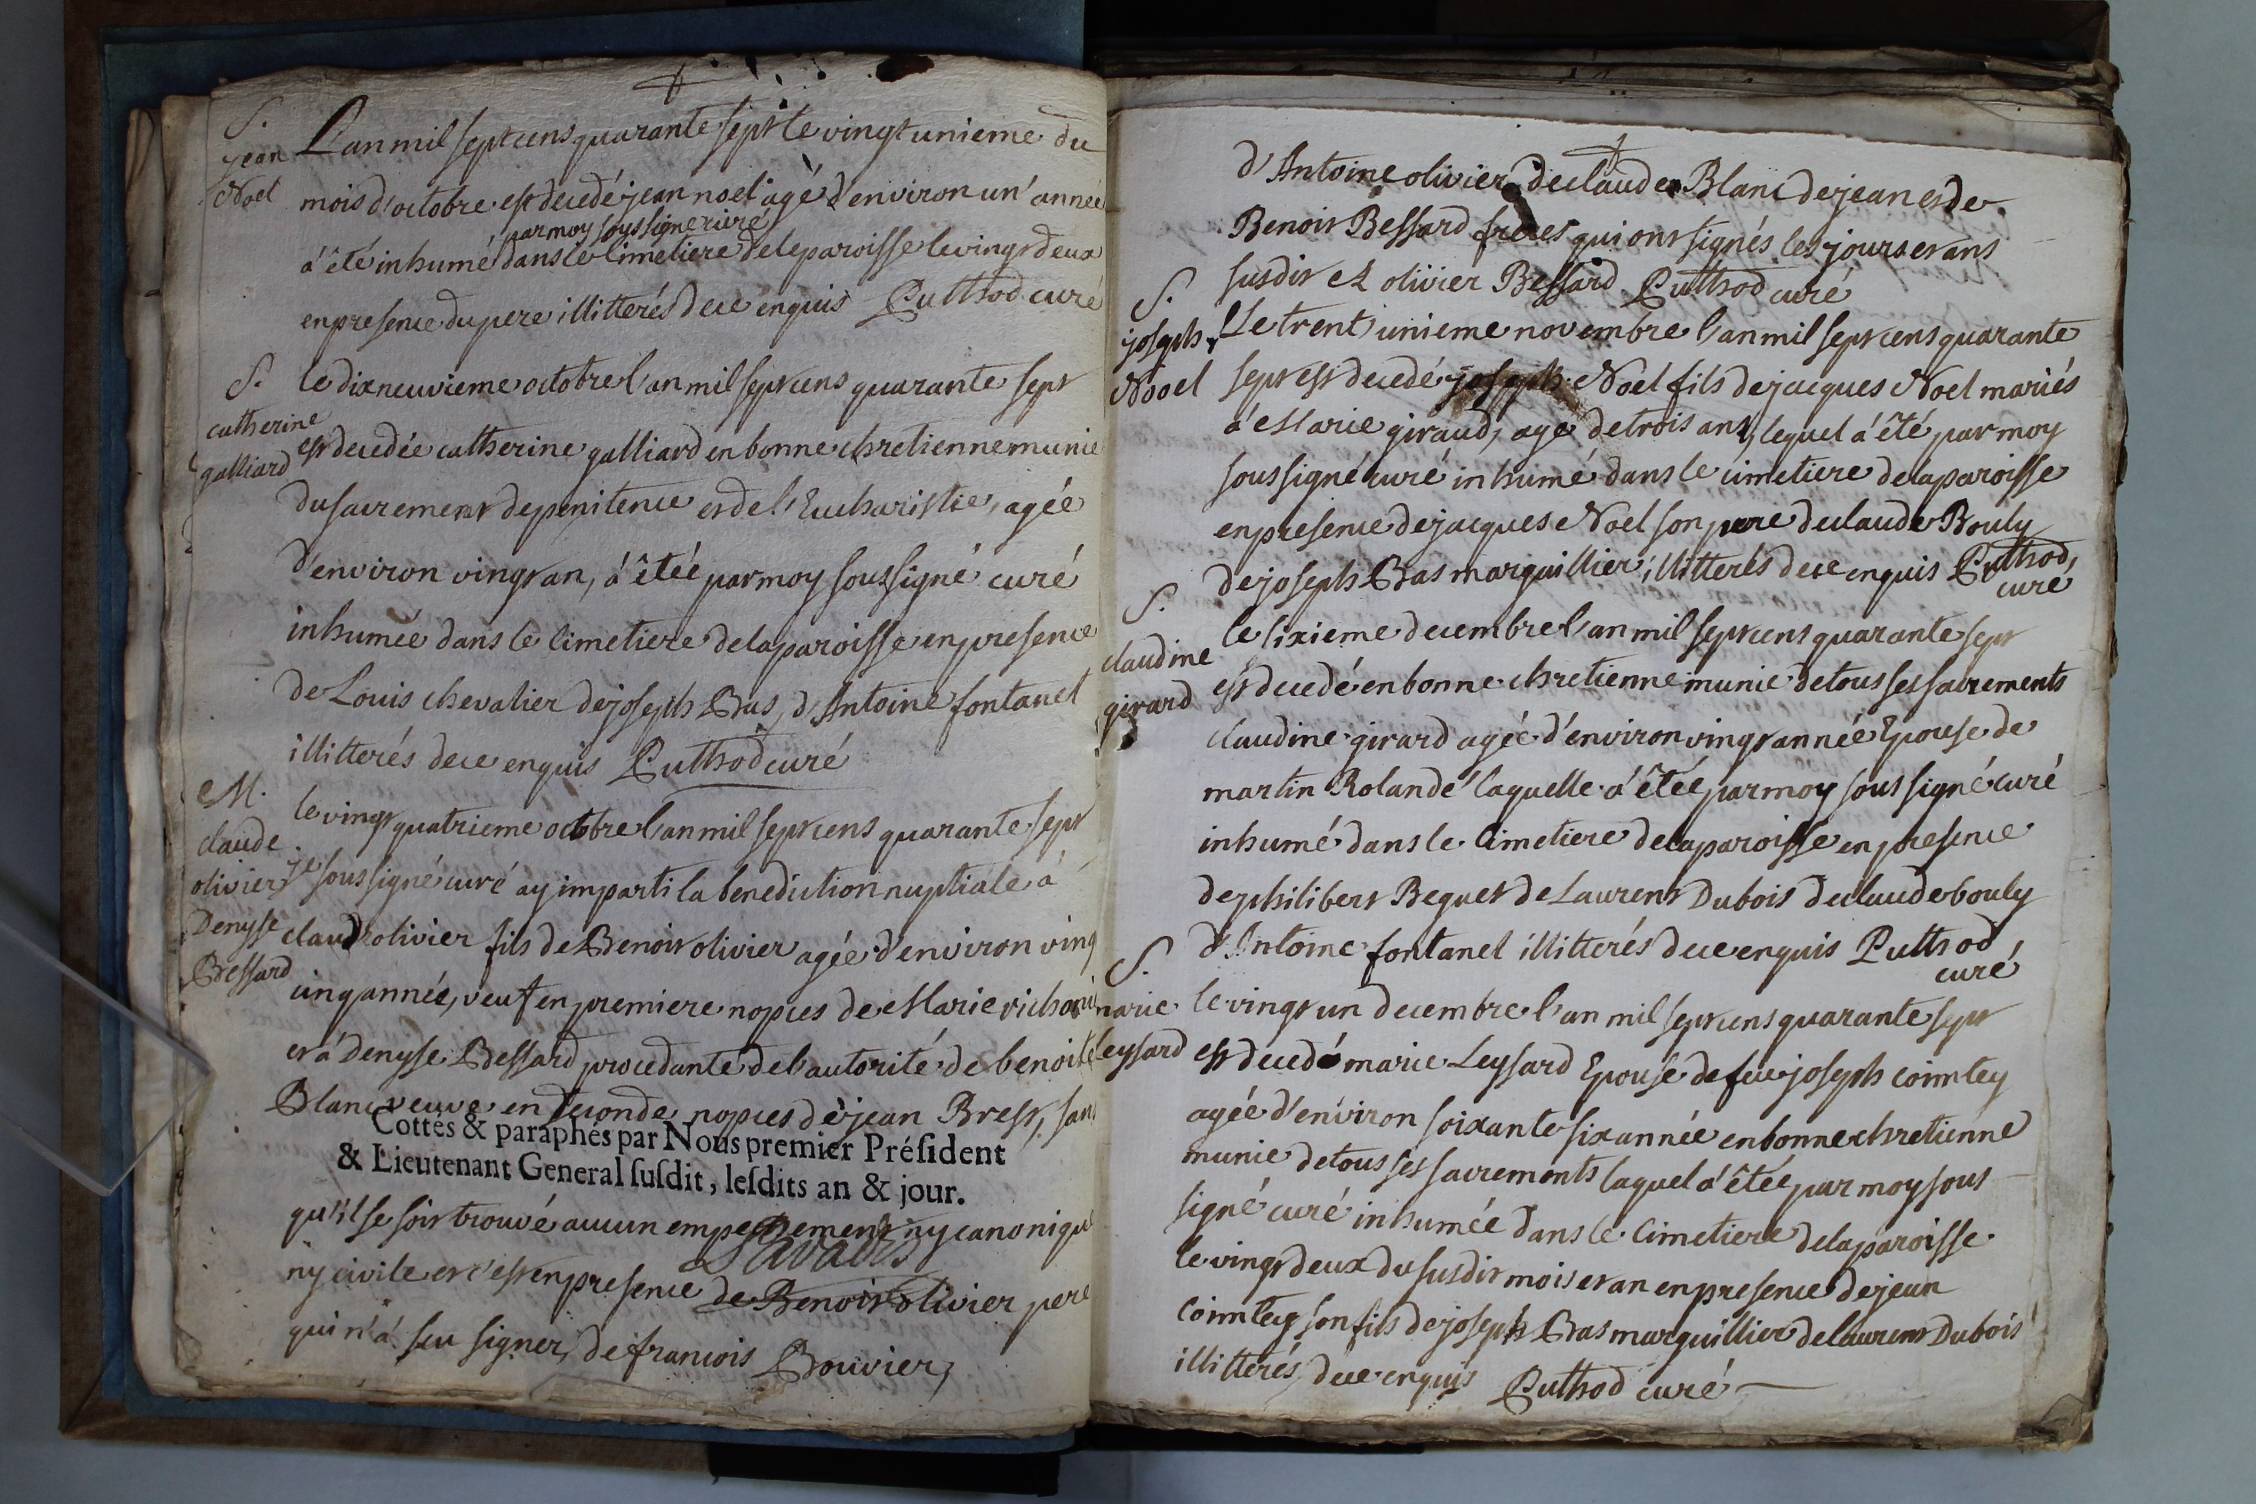 S.
jean
Noel
L'an mil sept cens quarante sept le vingt unieme du
mois d'octobre est decedé jean noel agé d'environ un' année
par moy soussigné
á êté inhumé dans le cimetiere de le paroisse le vingt deux
en presence du pere illitterés de ce enquis Puthod curé
S.
catherine
galliard
le dixneuvieme octobre l'an mil sept cens quarante sept
est decedée catherine galliard en bonne chretienne munie
du sacrement de penitence et de l'Eucharistie, agée
d'environ vingt an, á êtée par moy soussigné curé
inhumée dans le cimetiere de la paroisse en presence
de Louis chevalier de joseph Bas, d'Antoine fontanel
illitterés de ce enquis Puthod curé
M.
claude
olivier
Denyse
Bessard
le vingt quatrieme octobre l'an mil sept cens quarante sept
je soussigné curé ay imparti la benediction nuptiale á
claud olivier fils de Benoit olivier agée d'environ vingt
cinq année, veuf en premiere nopces de Marie
et á Denyse Bessard procedante de l'autorité de benoite
Blanc veuve en seconde nopces de jean Brest, sans
Cottés & paraphés par Nous premier Président
& Lieutenant General susdit, lesdits an & jour.
qu'il se soit trouvé aucun empechement ny canonique
ny civile et c'est en presence de Benoit olivier pere
qui n'á sçu signer, de francois Bouvier,
d'Antoine olivier de claude Blanc de jean et de
Benoit Bessard freres qui ont signés les jours et ans
susdit olivier Bessard Puthod curé
S.
joseph
Nooel
Le trent'unieme novembre l'an mil sept cens quarante
sept est decedé joseph Noel fils de jacques Noel mariés
á Marie giraud, agé de trois ans, lequel á êté par moy
soussigné curé inhumé dans le cimetiere de la paroisse
en presence de jacques Noel son pere de claude Bouly
de joseph Bas marguillier, illitterés de ce enquis Puthod,
curé
S.
claudine
girard
le sixieme decembre l'an mil sept cens quarante sept
est decedé en bonne chretienne munie de tous ses sacrements
claudine girard agée d'environ vingt année Epouse de
martin Rolande laquelle á êtée par moy soussigné curé
inhumé dans le cimetiere de la paroisse en presence
de philibert Beguet de Laurent Dubois de claude bouly
d'Antoine fontanel illitterés de ce enquis Puthod,
curé
S.
marie
Leyssard
le vingt un decembre l'an mil sept cens quarante sept
est decedé marie Leyssard Epouse de feu joseph cointey
agée d'environ soixante six année en bonne chretienne
munie de tous ses sacremonts laquel á êtée par moy sous
signé curé inhumée dans le cimetiere de la paroisse
le vingt deux du susdit mois et an en presence de jean
cointey son fils de joseph Bas marguillier de laurent Dubois
illitterés de ce enquis Puthod curé